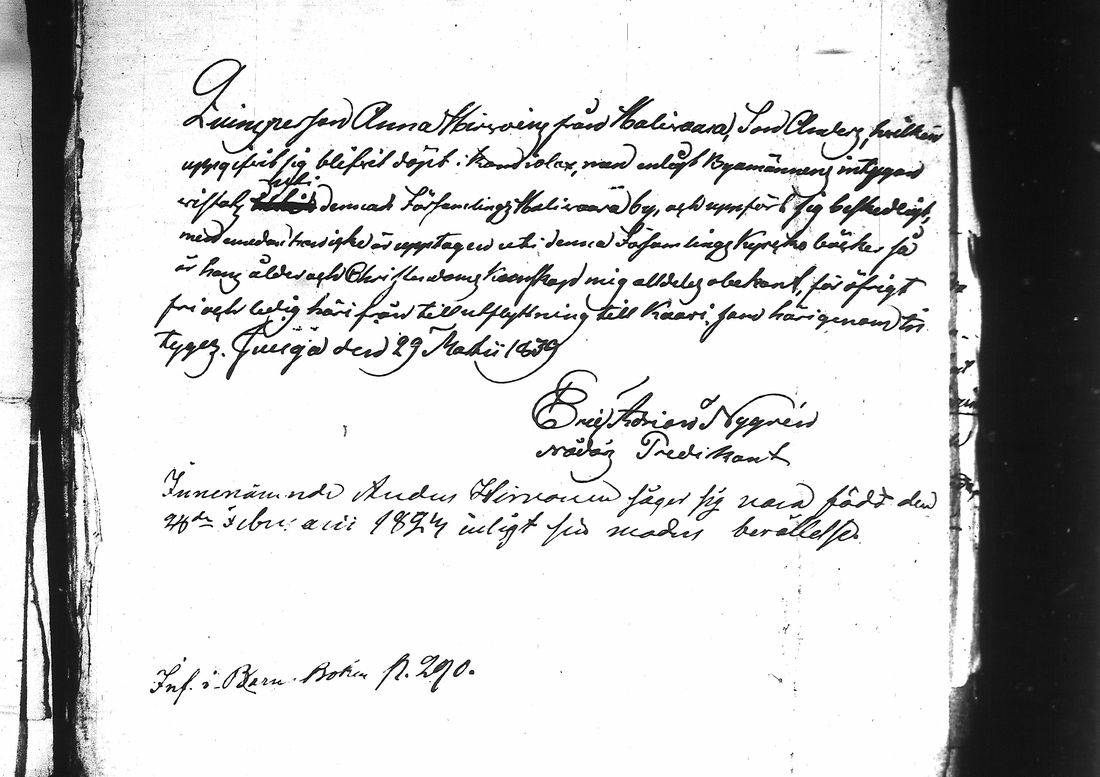 Quinsperson Anna Hirvoinens från Halivaara, Son Anders, hvilken
uppgifvit sig blifvit döpt i Kondiolax, men enligt Byamännens intygan
vistats uti denna Församlings Halivaara by, och uppfört sig beskedligt,
men emedan han icke är upptagen uti denna Församlings Kyrko böcker så
är hans ålder och Christendoms Kunskap mig alldeles obekant, för öfrigt
fri och ledig härifrån till utflyttning till Kaavi, som härigenom in
tygas. Juuga den 29 Martii 1839
Eric Adrian Nygrén
Nådårs Predikant
Innenämnde Anders Hirvonen säger sig vara född den
Februarii enligt sin moders berättelse.
Inf. i Barn Boken p. 290.